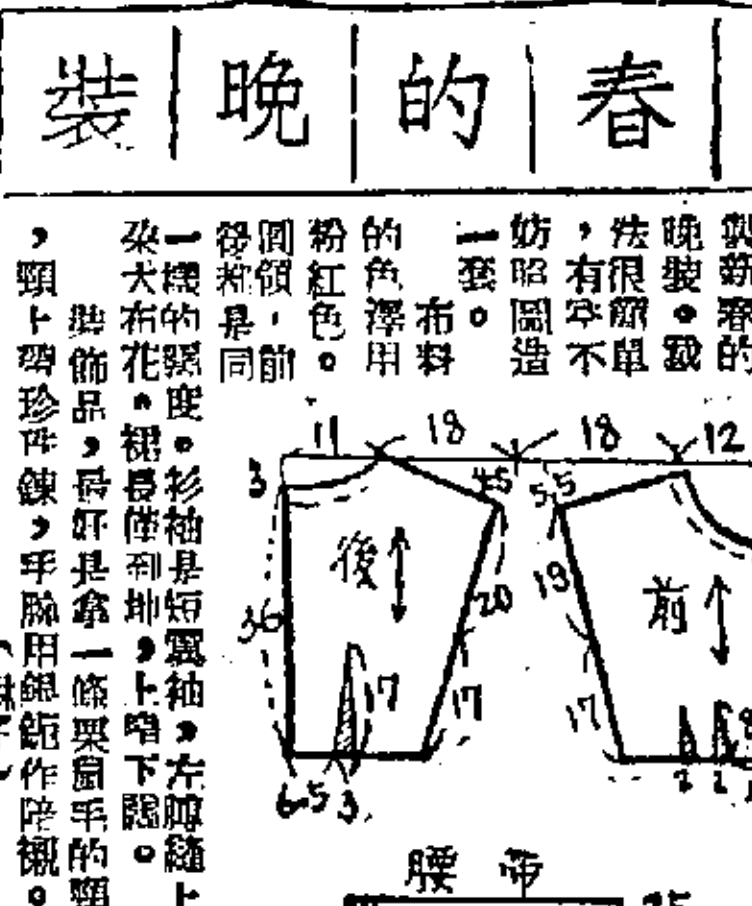 春的晚裝
製新春的
晚裝。裁
法很簡單
，有空不
妨照圖造
一套。
布料
的色澤用
粉紅色。
圓領，前
後均是同
一樣的濶度。衫袖是短翼袖，左膊縫上
朶大布花。裙長僅到地，上窄下濶。
裝飾品，最好是拿一條栗鼠毛的頸
，頸上帶珍珠鍊，手腕用銀鈪作陪襯。
11 18 18 12
3 4.5 5.5
後 前
36 20 19
17 17 17
6.5 3 2 2
腰帶